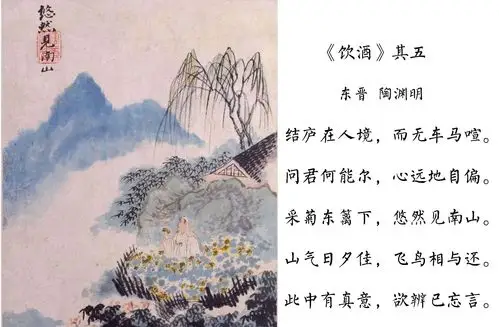 悠然見南山
《饮酒》其五
东晋 陶渊明
结庐在人境，而无车马喧。
问君何能尔，心远地自偏。
采菊东篱下，悠然见南山。
山气日夕佳，飞鸟相与还。
此中有真意，欲辨已忘言。